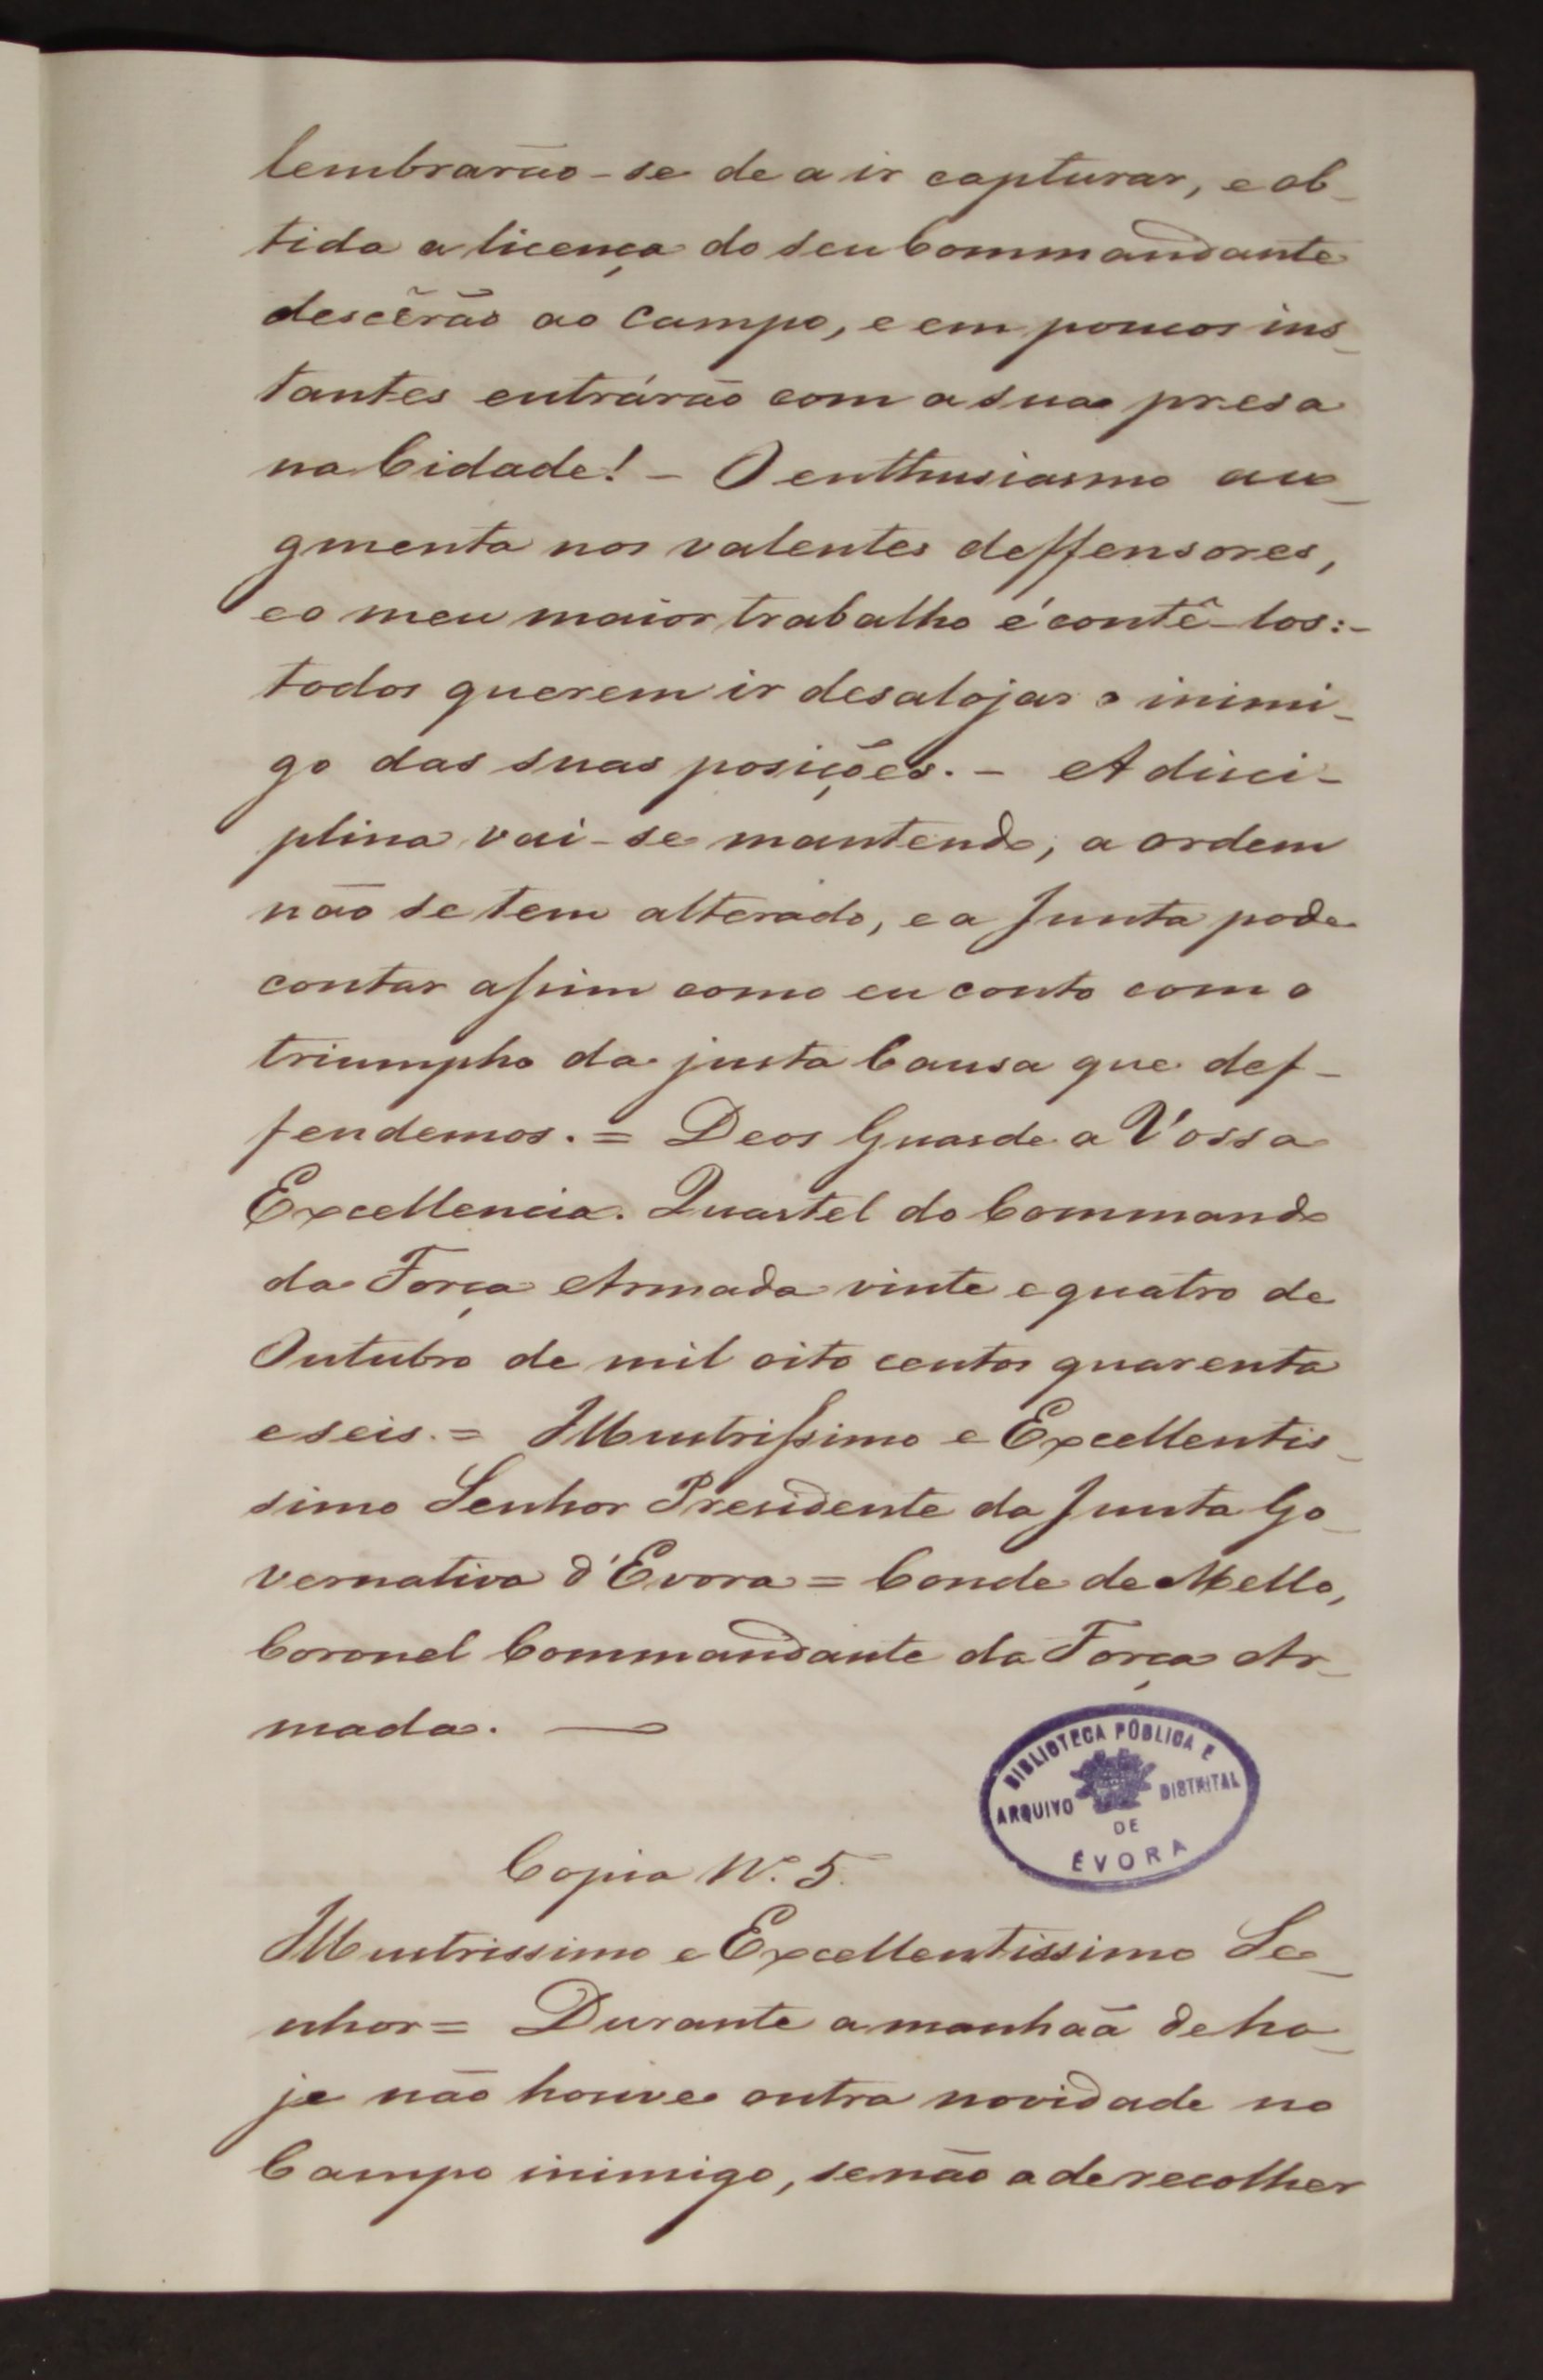 lembrarão-se de a ir capturar, e ob-
tida a licença do seu Commandante
descêrão ao Campo, e em poucos ins-
tantes entrárão com a sua presa
na Cidade! - O enthusiasmo au-
gmenta nos valentes deffensores,
e o meu maior trabalho é contê-los:-
todos querem ir desalojar o inimi-
go das suas posições. - A disci-
plina vai-se mantendo; a ordem
não se tem alterado, e a Junta pode
contar assim como eu conto com o
triumpho da justa Causa que def-
fendemos. = Deos Guarde a Vossa
Excellencia. Quartel do Commando
da Força Armada vinte e quatro de
Outubro de mil oito centos quarenta
e seis. = Illustrissimo e Excellentis-
simo Senhor Presidente da Junta Go-
vernativa d'Evora = Conde de Mello,
Coronel Commandante da Força Ar-
mada. —
BIBLIOTECA PÚBLICA E
ARQUIVO DISTRITAL
DE
ÉVORA
Copia N.º 5.
Illustrissimo e Excellentissimo Se-
nhor = Durante a manhaã de ho-
je não houve outra novidade no
Campo inimigo, senão a de recolher